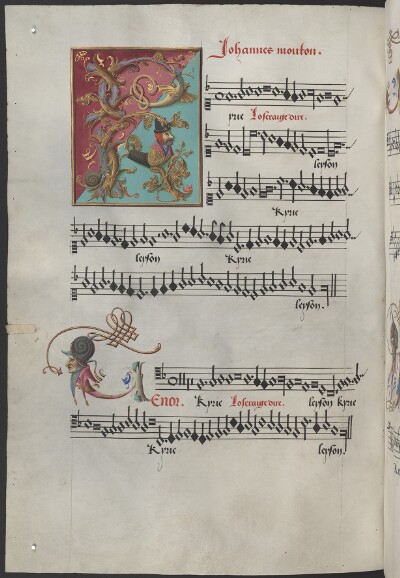 Johannes mouton.
yrie Loseraige dire.
leyson
Kyrie
leyson Kyrie
leyson.
Tenor. Kyrie Loseraige dire. leyson kyrie
Kyrie leyson.